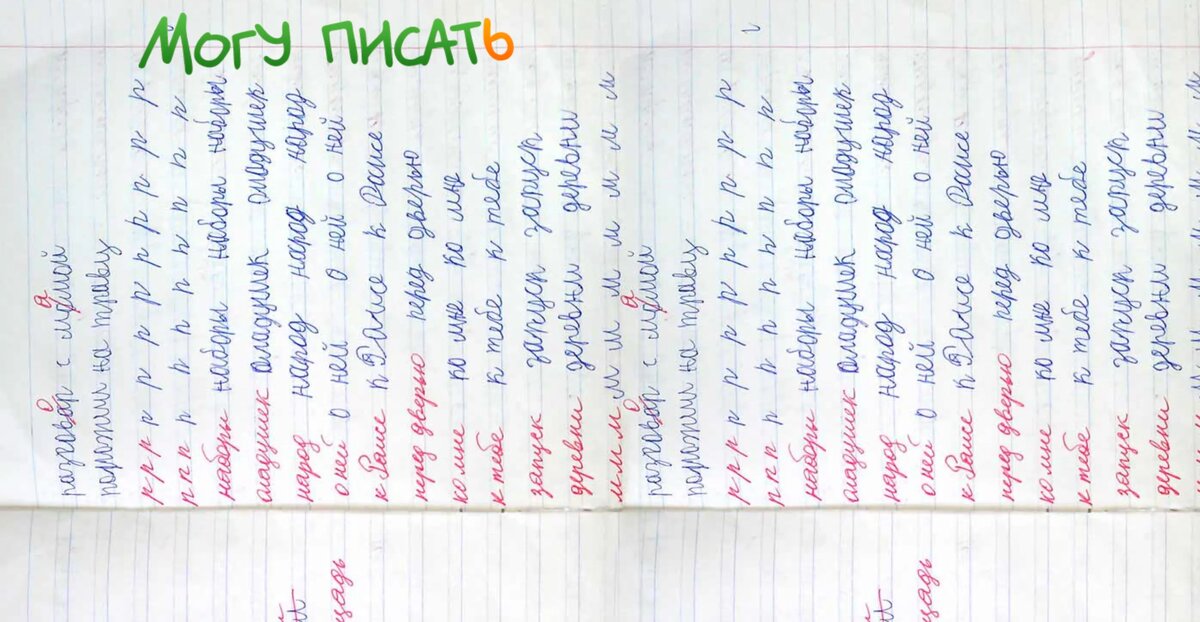 Могу писать
разговор с мамой
положи на траву
р р р р р р р р р р р
п п п п п п п п п п
наборы наборы наборы наборы
оладушек оладушек оладушек
народ народ народ народ
о ней о ней о ней о ней
к Раисе к Раисе к Раисе
перед дверью перед дверью
ко мне по мне ко мне
к тебе к тебе к тебе
запуск запуск запуск
деревни деревни деревни
м м м м м м м м м м
разговор с мамой
положи на траву
р р р р р р р р р р р
п п п п п п п п п п
наборы наборы наборы наборы
оладушек оладушек оладушек
народ народ народ народ
о ней о ней о ней о ней
к Раисе к Раисе к Раисе
перед дверью перед дверью
ко мне по мне ко мне
к тебе к тебе к тебе
запуск запуск запуск
деревни деревни деревни